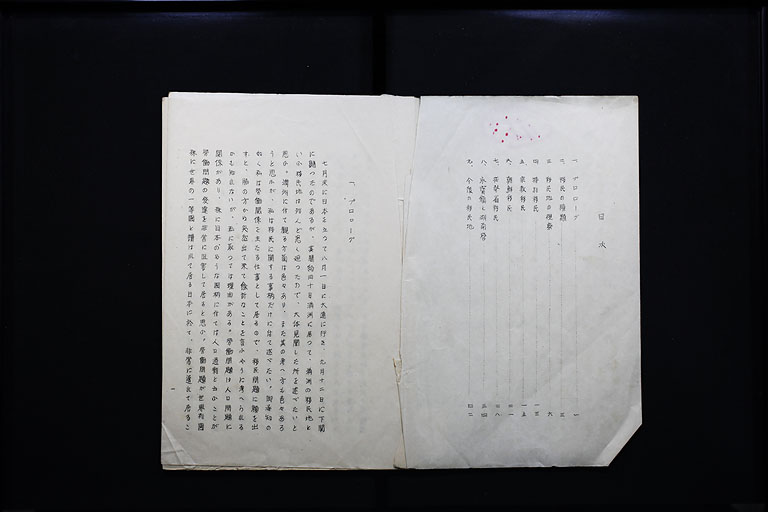 目次
一、プロローグ 一
二、移民の種類 三
三、移民地の視察 六
四、特別移民 一三
五、宗教移民 一五
六、朝鮮移民 二一
七、在勢着移民 二八
八、永富鎮と湖南營 三四
九、今後の移民地 四二
一、プロローグ
七月末に日本を立つて八月一日に大連に行き、九月十二日に下関
に歸つたのであるが、其間約四十日満洲に居つて、満洲の移民地と
いふ移民地は殆んど悉く廻つたので、大体見聞した所を述べたいと
思ふ。満洲に付て觀る方面は色々あり、また其の考へ方も色々あら
うと思ふが、私は移民に関する事柄だけに付て述べたい。御承知の
如く私は労働関係を主たる仕事として居るので、移民問題に顔を出
すと、脇の方から飛出て来て余計なことを言ふやうに考へられる
かも知れないが、私に取つては理由がある。労働問題は人口問題に
関係があり、殊に日本のやうな国柄に付ては人口過剰と云ふことが
労働問題の発達を非常に阻害して居ると思ふ。労働問題が世界列国
殊に世界の一等国と謂はれて居る日本に於て、非常に遅れて居るこ